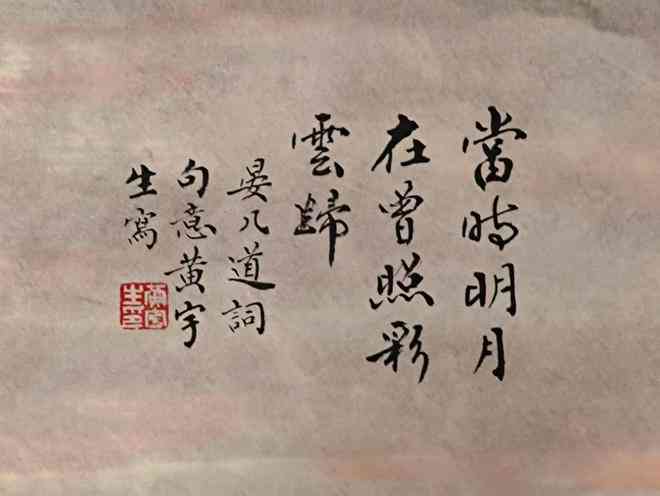 當時明月
在曾照彩
雲歸
晏几道詞
句意黄宇
生寫